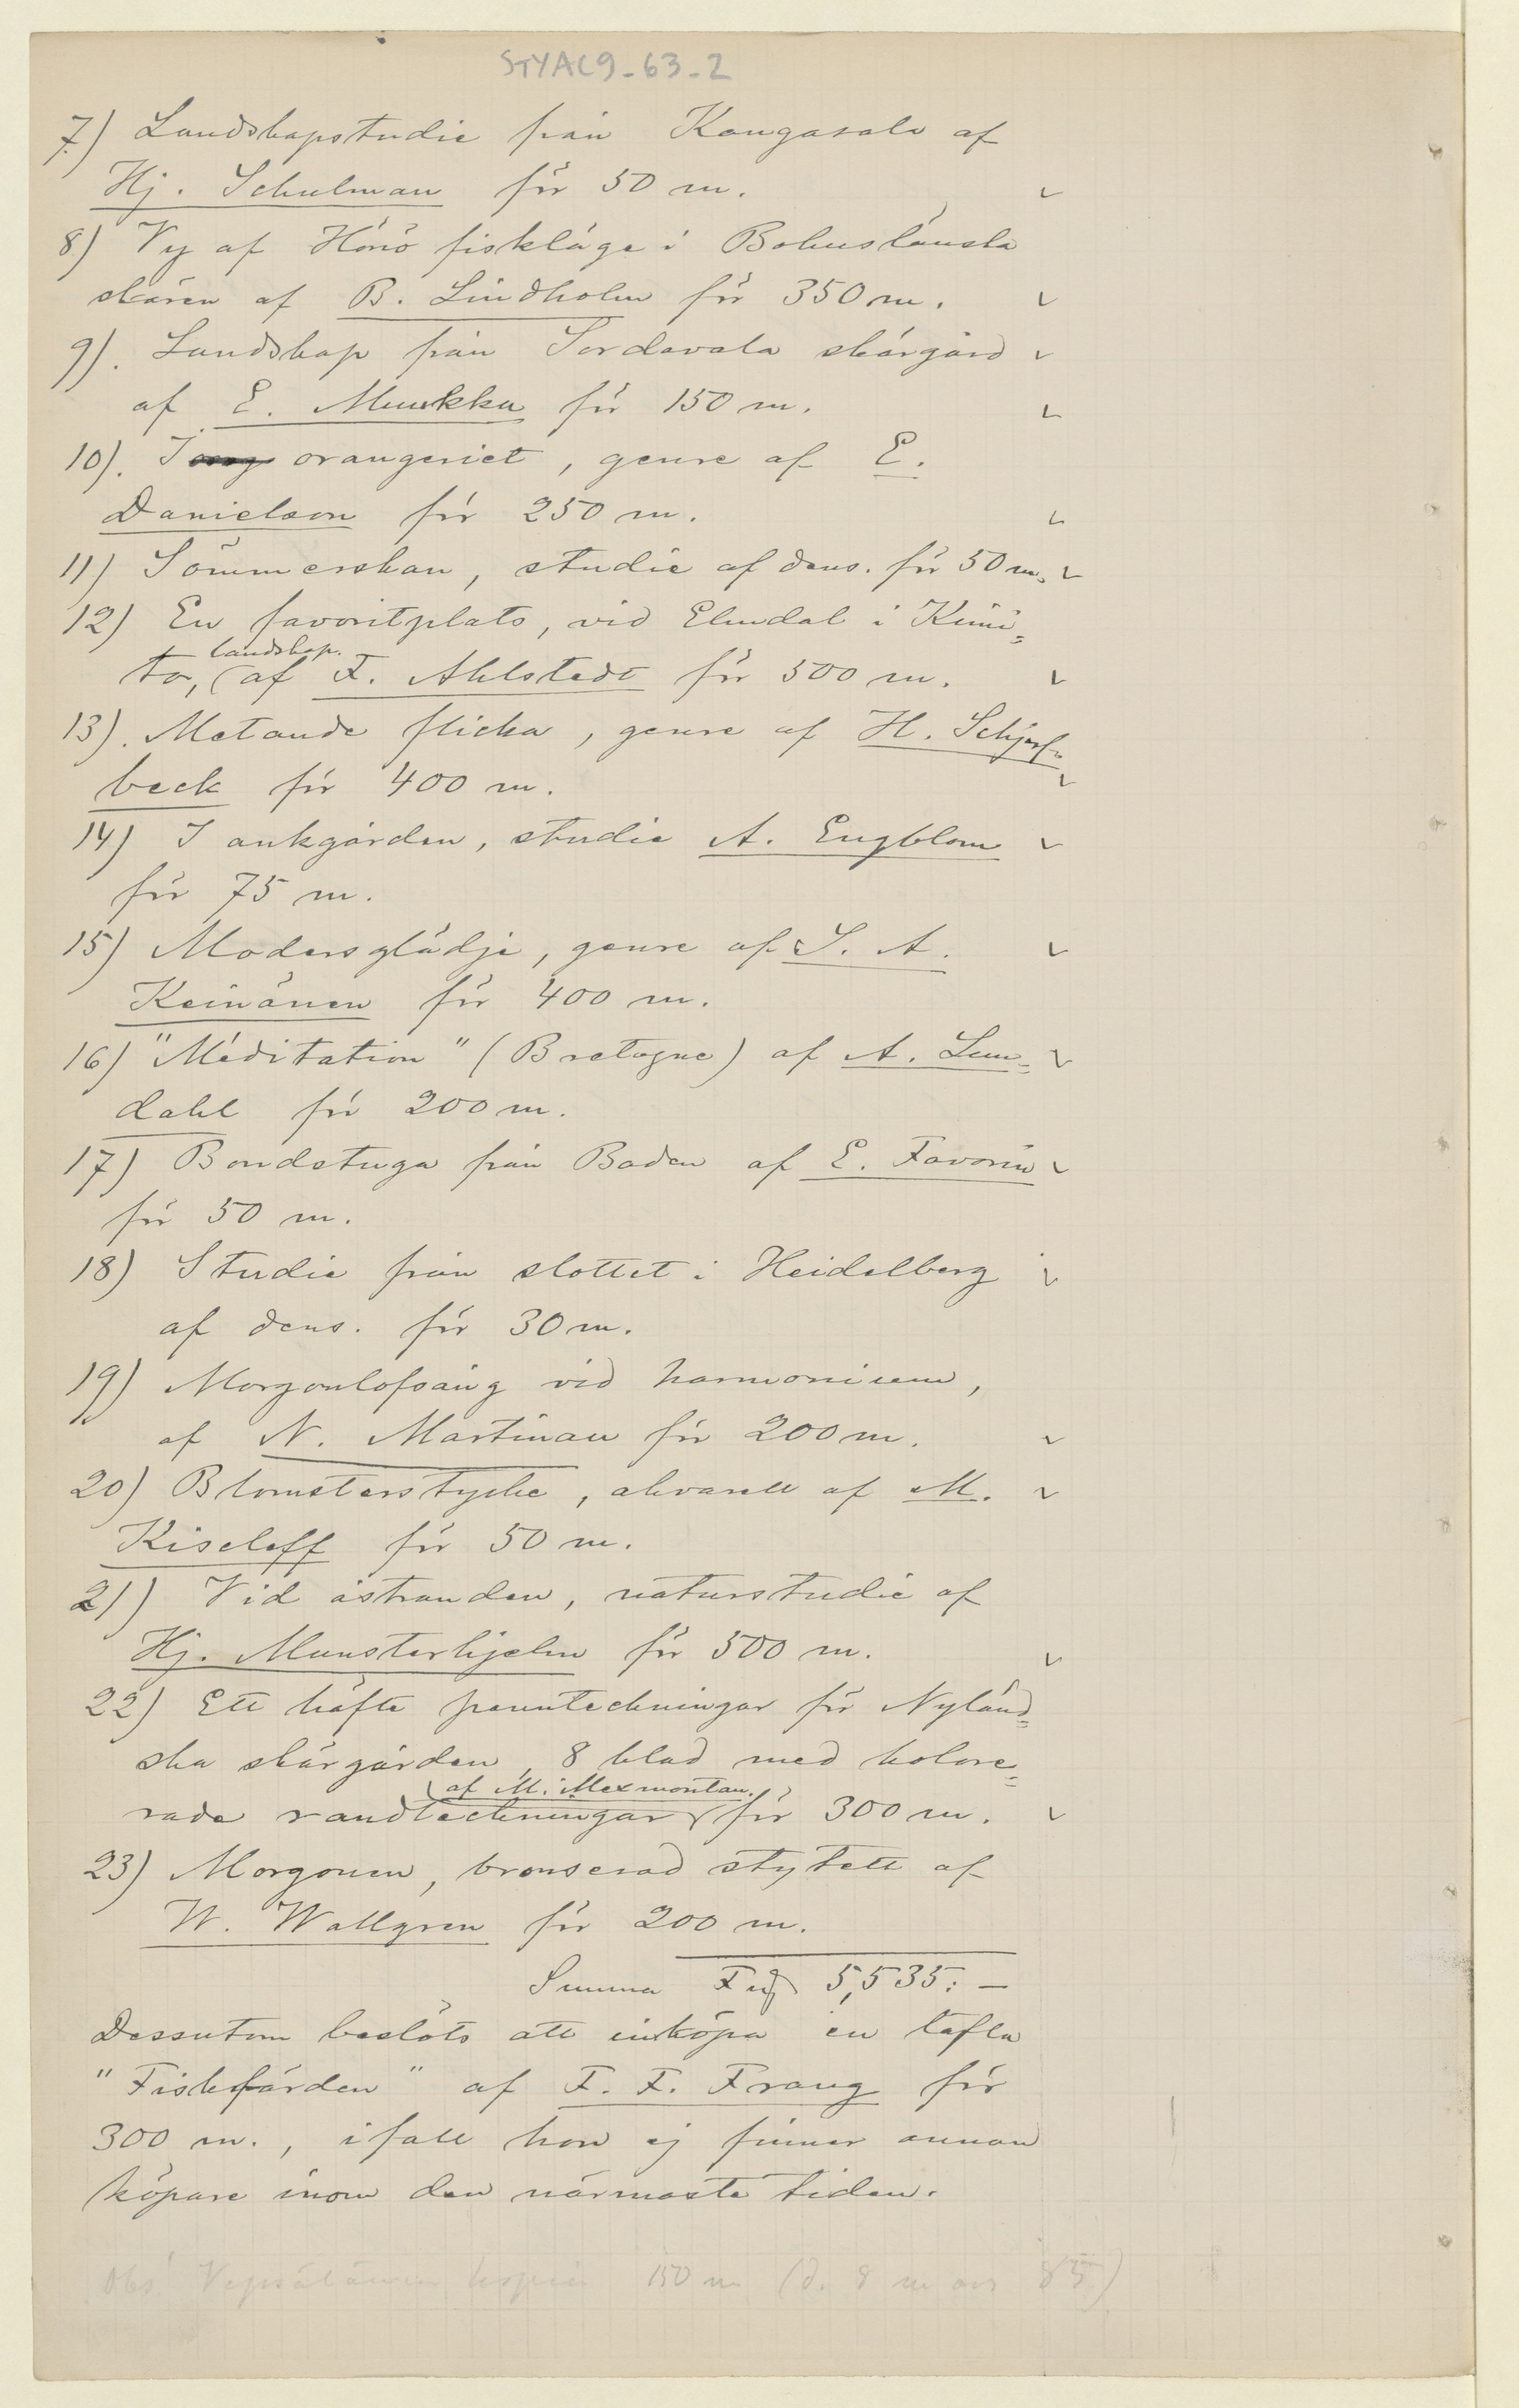 STYAC9-63-2
7.) Landskapstudie från Kangasala af
Hj. Schulman för 50 m. ✓
8) Vy af Hönö fiskläge i Bohuslänska
skären af B. Lindholm för 350 m. ✓
9). Landskap från Sordavala skärgård ✓
af E. Muukka för 150 m. ✓
10). I orangeriet, genre af E.
Danielson för 250 m. ✓
11) Sömmerskan, studie af dens. för 50 m. ✓
12) En favoritplats, vid Elmdal i Kimi-
landskap.
to, (af F. Ahlstedt för 500 m. ✓
13). Metande flicka, genre af H. Schjerf-
beck för 400 m. ✓
14) I ankgården, studie A. Engblom ✓
för 75 m.
15) Modersglädje, genre af S. A. ✓
Keinänen för 400 m.
16) "Méditation" (Bretagne) af A. Lun- ✓
dahl för 200 m.
17) Bondstuga från Baden af E. Favorin ✓
för 50 m.
18) Studie från slottet i Heidelberg ✓
af dens. för 30 m.
19) Morgonlofsång vid harmonium,
af N. Martinau för 200 m. ✓
20) Blomsterstycke, akvarell af M. ✓
Kiseleff för 50 m.
21) Vid åstranden, naturstudie af
Hj. Munsterhjelm för 500 m. ✓
22) Ett häfte penntechningar för Nyländ-
ska skärgården, 8 blad med kolore-
af M. Mexmontan.
rade randtechningar för 300 m. ✓
23) Morgonen, bronserad stytett af
W. Wallgren för 200 m.
Summa Fmf 5,535: —
Dessutom beslöts att inköpa en tafla
"Fiskfärden" af F. F. Frang för
300 m., ifall hon ej finner annan
köpare inom den närmaste tiden.
Obs! 150 m